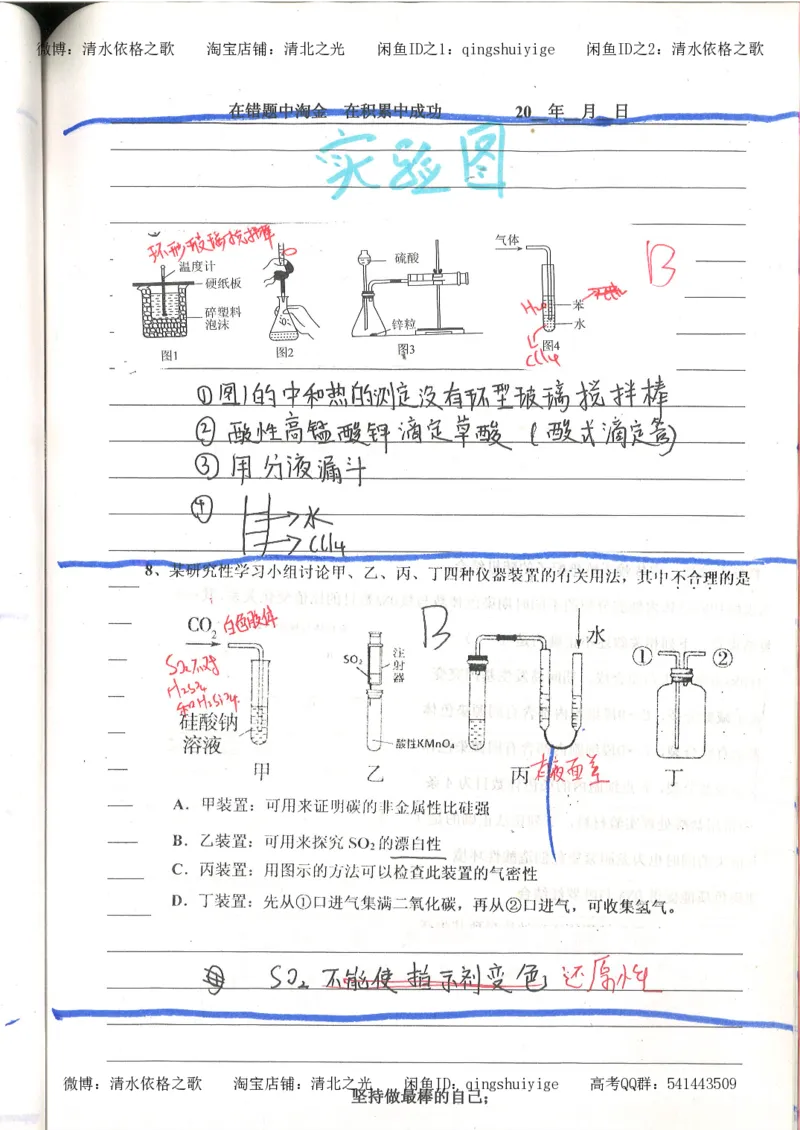 微博：清水依格之歌 淘宝店铺：清北之光 闲鱼ID之1：qingshuiyige 闲鱼ID之2：清水依格之歌
在错题中淘金 在积累中成功 20__年__月__日
实验图
环形玻璃搅拌棒
温度计
硬纸板
碎塑料
泡沫
图1
图2
硫酸
锌粒
图3
气体
苯
水
H₂O
CCl4
图4
B
①图1的中和热的测定没有环型玻璃搅拌棒
②酸性高锰酸钾滴定草酸（酸式滴定管）
③用分液漏斗
④
水
CCl4
8、某研究性学习小组讨论甲、乙、丙、丁四种仪器装置的有关用法，其中不合理的是
CO₂
白色胶体
SO₂不对
H₂SO₄
和H₂SiO₃
硅酸钠
溶液
甲
SO₂
注
射
器
酸性KMnO₄
乙
B
水
丙
液面差
① ②
丁
A．甲装置：可用来证明碳的非金属性比硅强
B．乙装置：可用来探究 SO₂的漂白性
C．丙装置：用图示的方法可以检查此装置的气密性
D．丁装置：先从①口进气集满二氧化碳，再从②口进气，可收集氢气。
SO₂不能使指示剂变色 还原性
微博：清水依格之歌 淘宝店铺：清北之光 闲鱼ID：qingshuiyige 高考QQ群：541443509
坚持做最棒的自己；